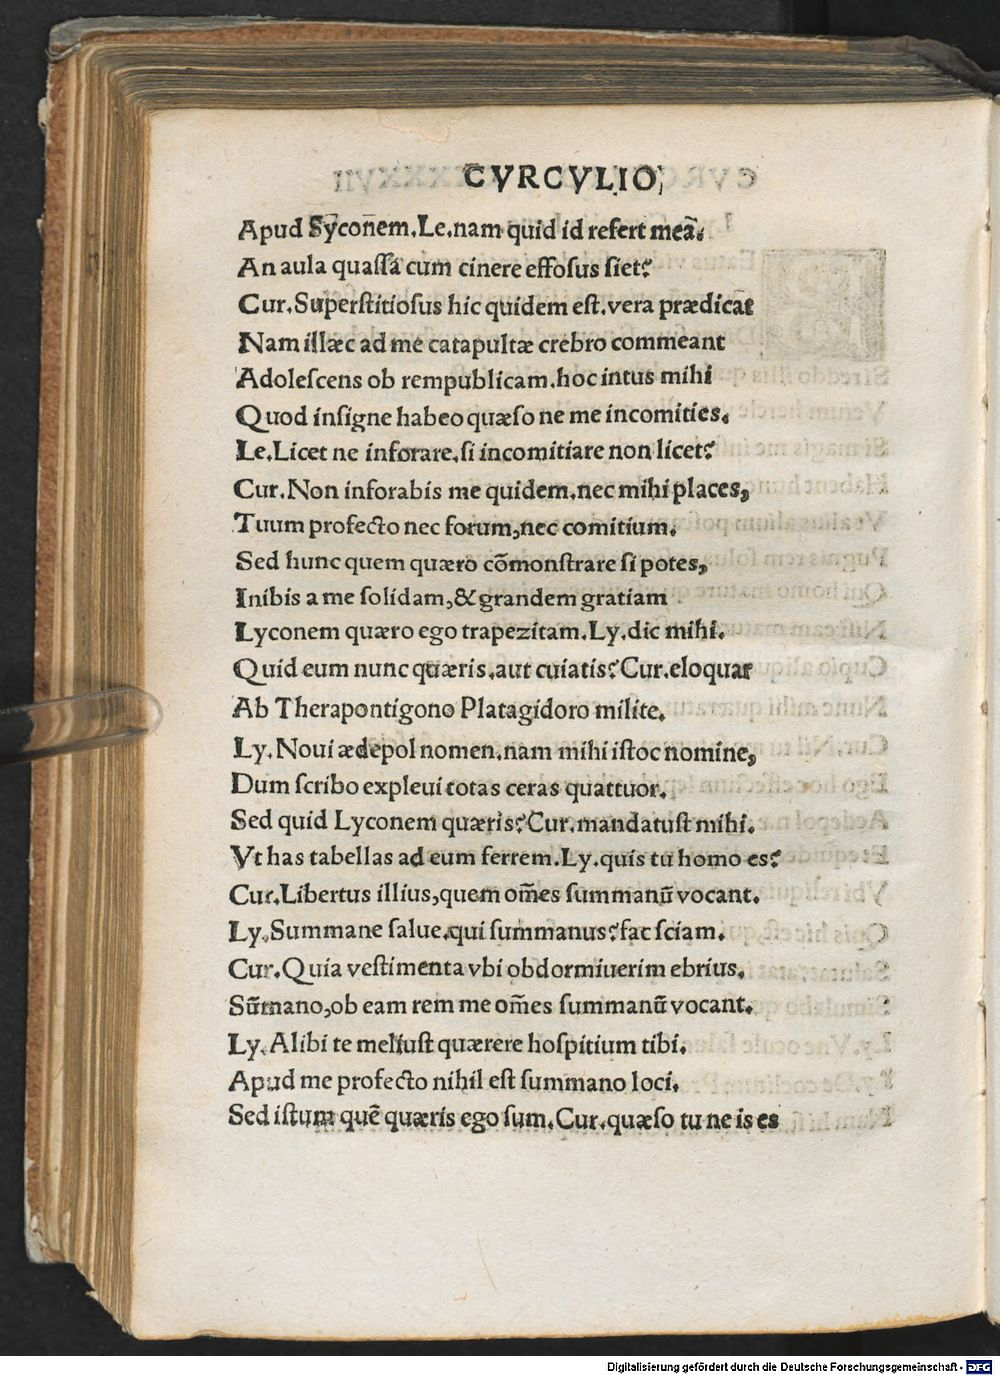 CVRCVLIO,
Apud Sy̅con̅em.Le.nam quid id refert mea̅.
An aula quaſſa cum cinere effoſus ſiet?
Cur.Superſtitioſus hic quidem eſt.vera prædicat
Nam illæc ad me catapultæ crebro commeant
Adoleſcens ob rempublicam.hoc intus mihi
Quod inſigne habeo quæſo ne me incomities.
Le.Licet ne inforare,ſi incomitiare non licet?
Cur.Non inforabis me quidem.nec mihi places,
Tuum profecto nec forum,nec comitium.
Sed hunc quem quæro cõmonſtrare ſi potes,
Inibis a me ſolidam,& grandem gratiam
Lyconem quæro ego trapezitam.Ly.dic mihi.
Quid eum nunc quæris.aut cuiatis?Cur.eloquar
Ab Therapontigono Platagidoro milite.
Ly.Noui ædepol nomen.nam mihi iſtoc nomine,
Dum ſcribo expleui totas ceras quattuor.
Sed quid Lyconem quæris?Cur.mandatuſt mihi.
Vt has tabellas ad eum ferrem.Ly.quis tu homo es?
Cur.Libertus illius,quem om̅es ſummanũ vocant.
Ly.Summane ſalue.qui ſummanus?fac ſciam.
Cur.Quia veſtimenta vbi obdormiuerim ebrius.
Sũmano,ob eam rem me om̅es ſummanũ vocant.
Ly.Alibi te meliuſt quærere hoſpitium tibi.
Apud me profecto nihil eſt ſummano loci.
Sed iſtum quẽ quæris ego ſum.Cur.quæſo tu ne is es
Digitalisierung gefördert durch die Deutsche Forschungsgemeinschaft - DFG